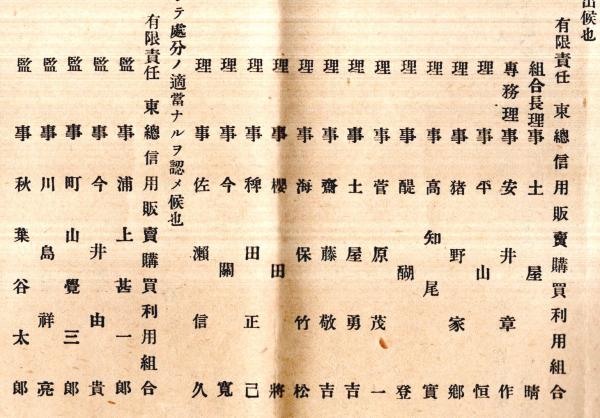 出候也
有限責任東總信用販賣購買利用組合
組合長理事土屋晴
專務理事安井章作
理事平山恒
理事猪野家鄕
理事高知尾實
理事醍醐登
理事菅原茂一
理事土屋勇吉
理事齋藤敬吉
理事海保竹松
理事櫻田將
理事稗田正己
理事今關寬
理事佐瀨信久
テ處分ノ適當ナルヲ認メ候也
有限責任東總信用販賣購買利用組合
監事浦上甚一郎
監事今井由貴
監事町山覺三郎
監事川島祥亮
監事秋葉谷太郎